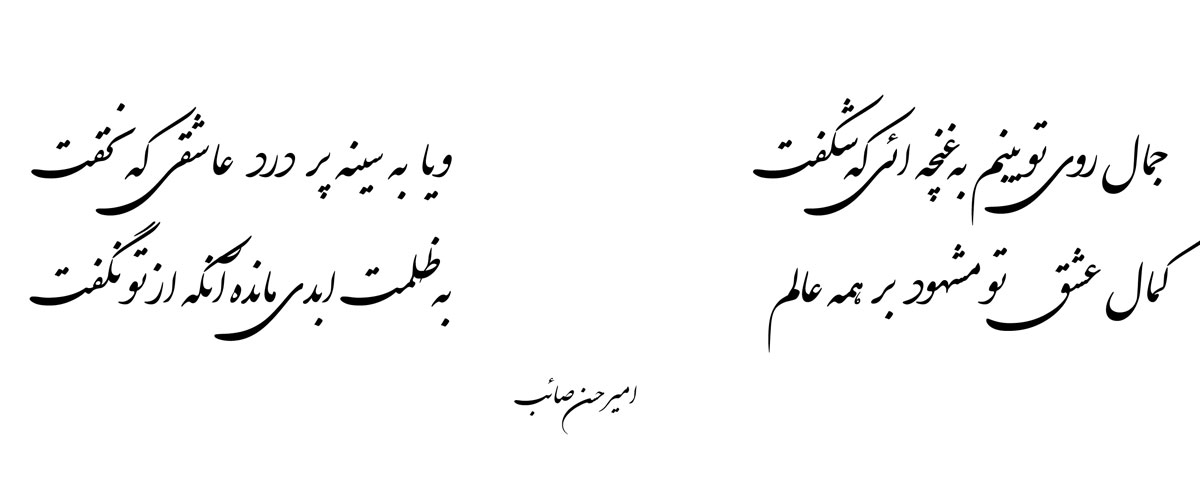 جمال روی تو بینم به غنچه ائی که شگفت
ویا به سینه پر درد عاشقی که نخفت
کمال عشق تو مشهود بر همه عالم
به ظلمت ابدی مانده آنکه از تو نگفت
امیرحسن صائب